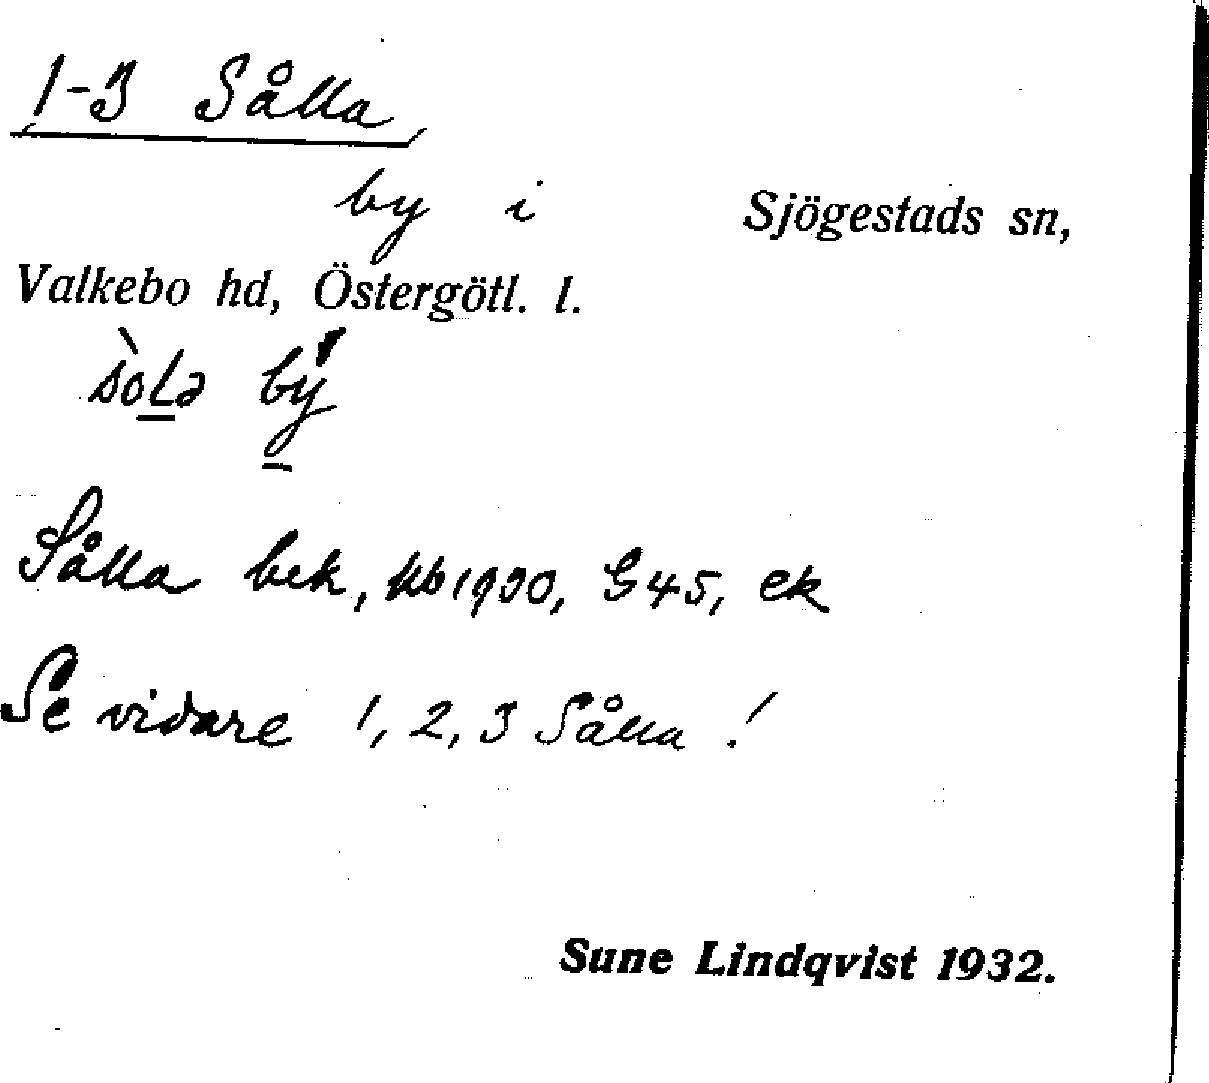 1-3 Sålla,
by i Sjögestads sn,
Valkebo hd, Östergötl. l.
sòLa by
Sålla bek, kb 1900, G45, ek
Se vidare 1, 2, 3 Sålla !
Sune Lindqvist 1932.